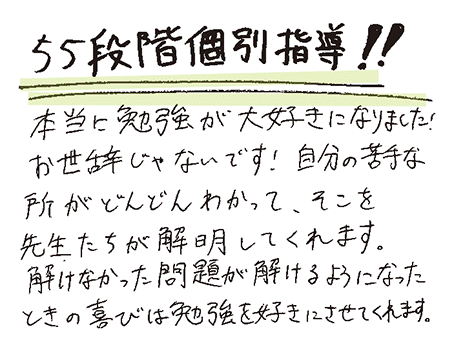 55段階個別指導!!
本当に勉強が大好きになりました!
お世辞じゃないです! 自分の苦手な
所がどんどんわかって、そこを
先生たちが解明してくれます。
解けなかった問題が解けるようになった
ときの喜びは勉強を好きにさせてくれます。